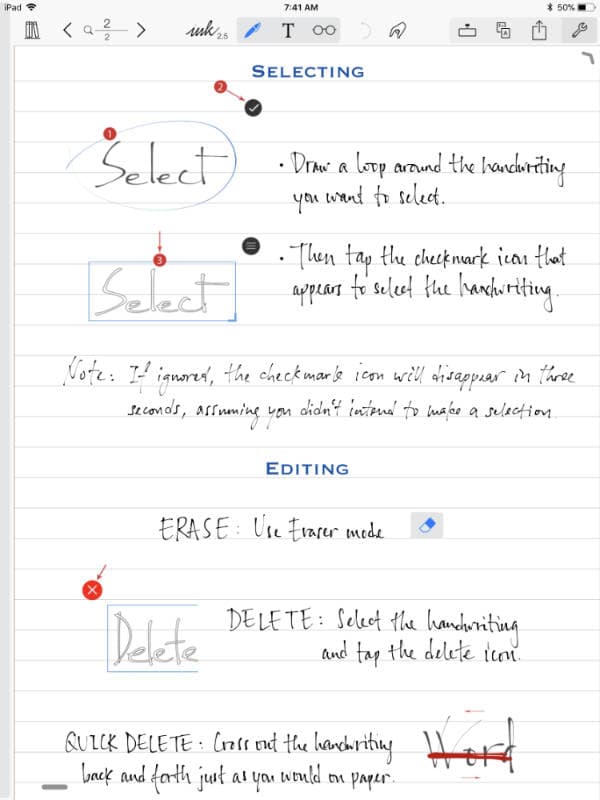 iPad 7:41 AM 50%
2
2
ink 2.5
T
SELECTING
2
1
Select
• Draw a loop around the handwriting
you want to select.
3
Select
• Then tap the checkmark icon that
appears to select the handwriting.
Note: If ignored, the checkmark icon will disappear in three
seconds, assuming you didn't intend to make a selection.
EDITING
ERASE: Use Eraser mode
Delete
DELETE: Select the handwriting
and tap the delete icon.
QUICK DELETE: Cross out the handwriting
back and forth just as you would on paper.
Word